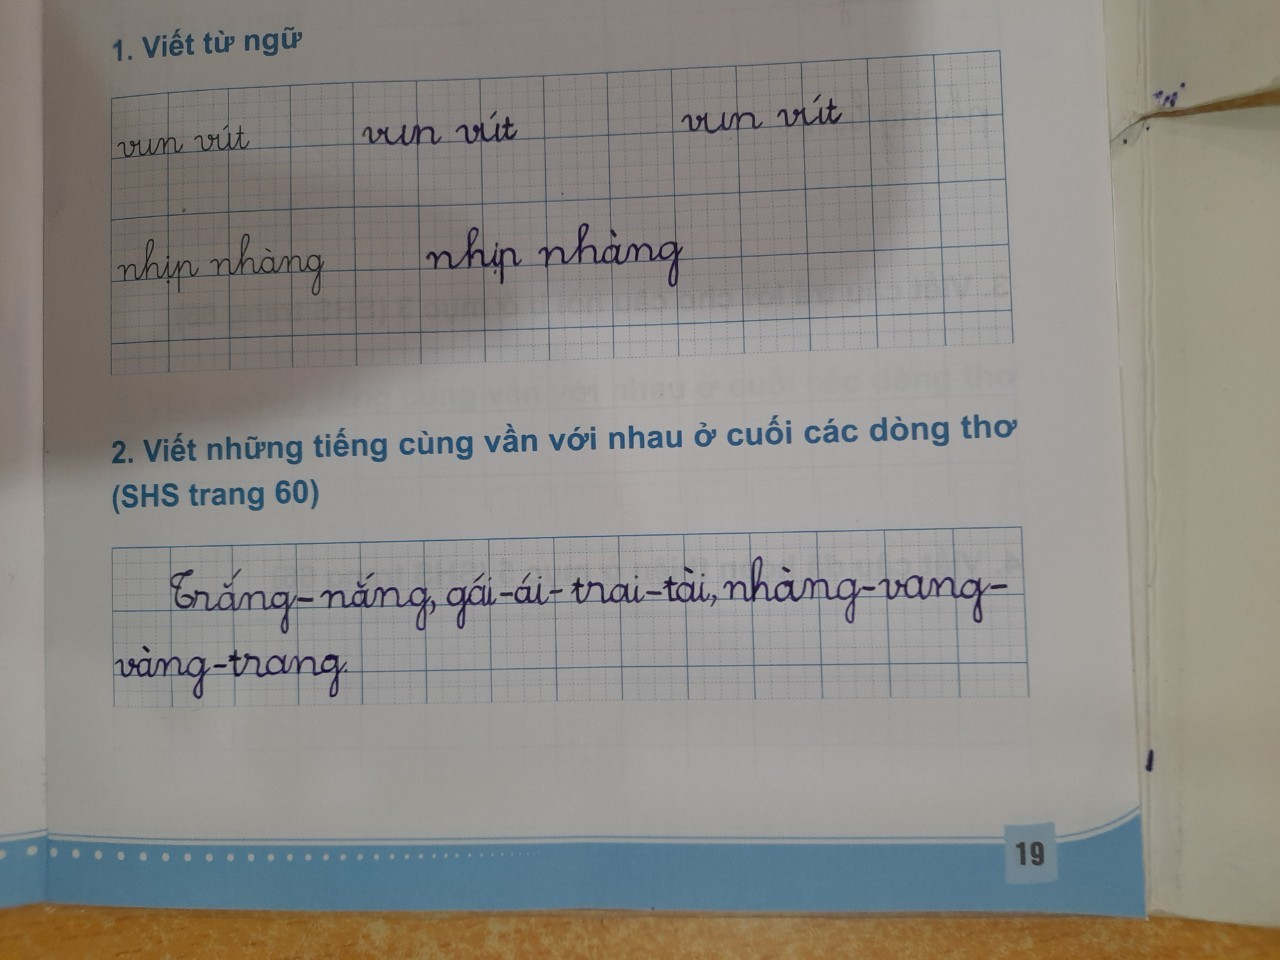 1. Viết từ ngữ
vun vút vun vút vun vút
nhịp nhàng nhịp nhàng
2. Viết những tiếng cùng vần với nhau ở cuối các dòng thơ
(SHS trang 60)
Trắng-nắng, gái-ái-trai-tài, nhàng-vang-
vàng-trang.
19